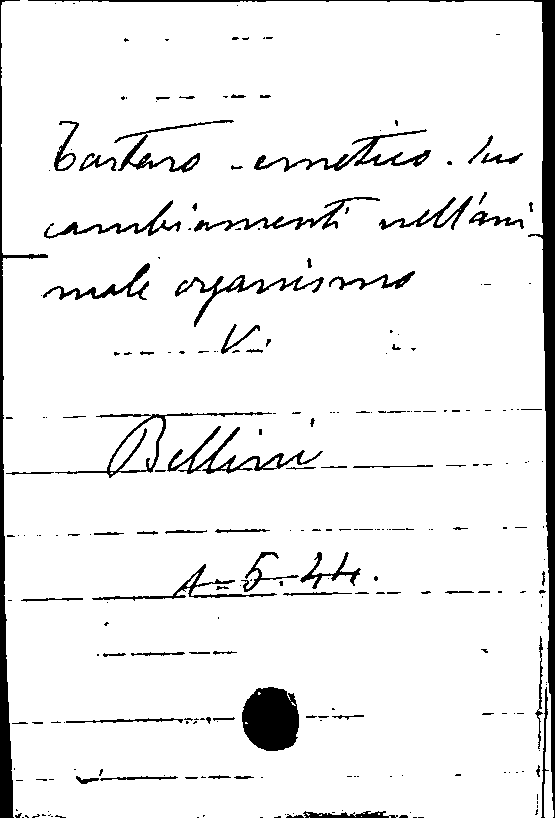 Tartaro-emetico. Suo
cambiamenti nell'ani-
male organismo
V.
Bellini
A=5.44.